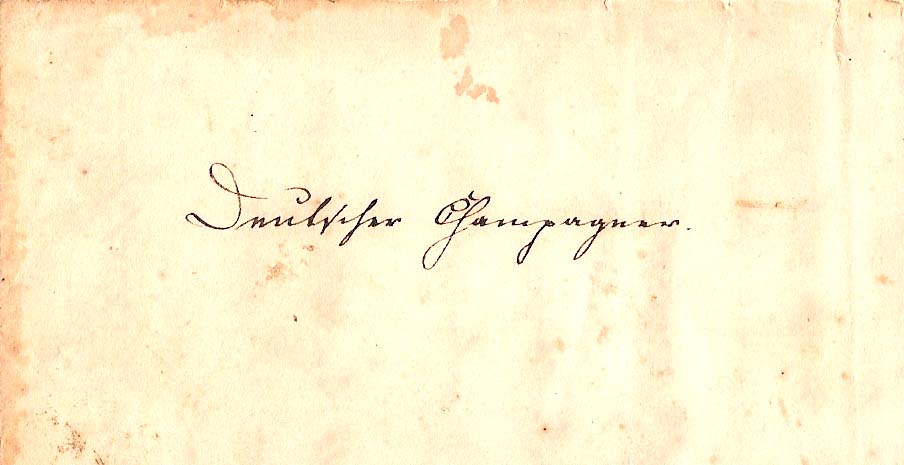 Deutscher Champagner.